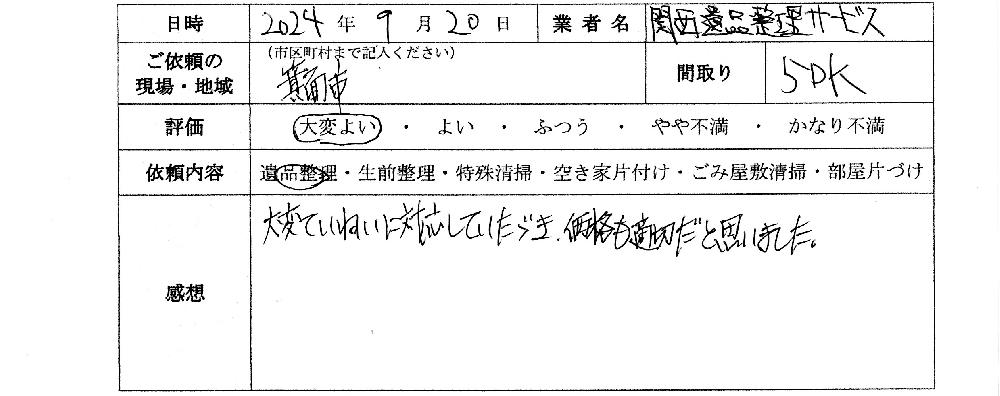 日時 2024 年 9 月 20 日 業者名 関西遺品整理サービス
ご依頼の現場・地域 (市区町村まで記入ください) 箕面市 間取り 5DK
評価 大変よい ・ よい ・ ふつう ・ やや不満 ・ かなり不満
依頼内容 遺品整理・生前整理・特殊清掃・空き家片付け・ごみ屋敷清掃・部屋片づけ
感想 大変ていねいに対応していただき、価格も適切だと思いました。